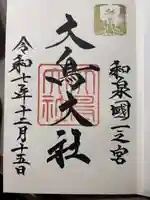 和泉國一之宮
大鳥大社
令和七年十二月十五日